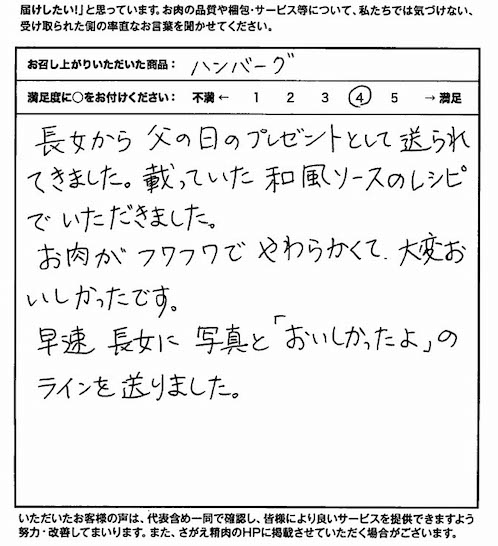 届けしたい!」と思っています。お肉の品質や梱包・サービス等について、私たちでは気づけない、
受け取られた側の率直なお言葉を聞かせてください。
お召し上がりいただいた商品: ハンバーグ
満足度に○をお付けください: 不満 ← 1 2 3 4 5 → 満足
長女から 父の日のプレゼントとして 送られ
てきました。載っていた 和風ソースのレシピ
で いただきました。
お肉が フワフワで やわらかくて、大変お
いしかったです。
早速 長女に 写真と「おいしかったよ」の
ラインを 送りました。
いただいたお客様の声は、代表含め一同で確認し、皆様により良いサービスを提供できますよう
努力・改善してまいります。また、さがえ精肉のHPに掲載させていただく場合がございます。